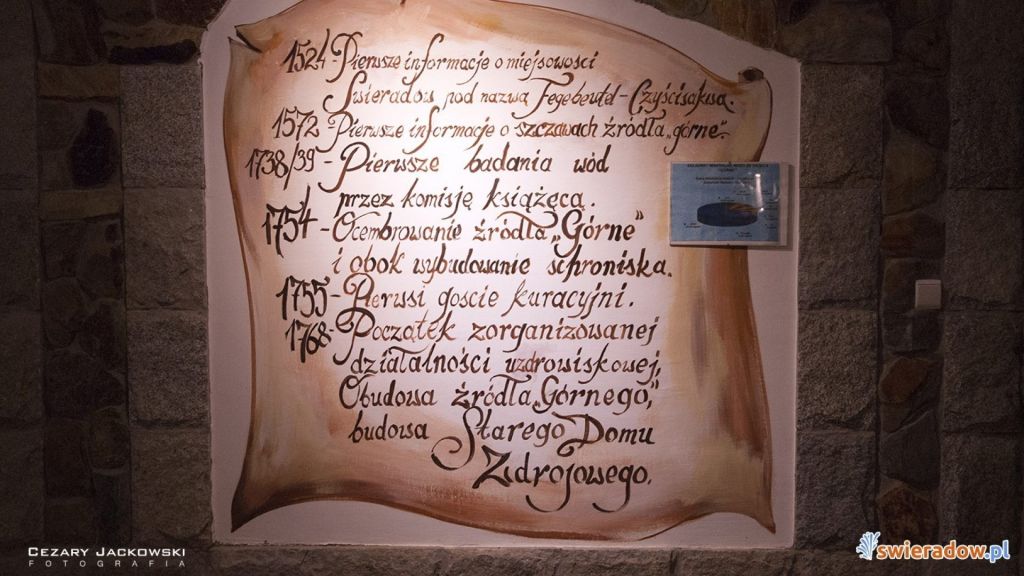 1524-Pierwsze informacje o miejsowości
Świeradów pod nazwą Fegebeutel-Czyścisakwa.
1572-Pierwsze informacje o szczawach źródła „górne”.
1738/39-Pierwsze badania wód
przez komisję książęcą.
1754-Ocembrowanie źródła „Górne”
i obok wybudowanie schroniska.
1755-Pierwsi goscie kuracyjni.
1768-Początek zorganizowanej
działalności uzdrowiskowej,
Obudowa źródła „Górnego”,
budowa Starego Domu
Zdrojowego.
CEZARY JACKOWSKI
FOTOGRAFIA
swieradow.pl